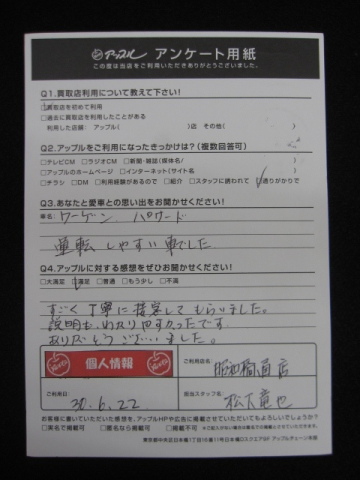 アップル アンケート用紙
この度は当店をご利用いただきありがとうございました。
Q1.買取店利用について教えて下さい!
□買取店を初めて利用
□過去に買取店を利用したことがある
利用した店舗: アップル( )店 その他( )
Q2.アップルをご利用になったきっかけは?(複数回答可)
□テレビCM □ラジオCM □新聞・雑誌(媒体名/ )
□アップルのホームページ □インターネット(サイト名 )
□チラシ □DM □利用経験があるので □紹介 □スタッフに誘われて □通りがかりで
Q3.あなたと愛車との思い出をお聞かせください!
車名: ワーゲン パサート
運転しやすい車でした
Q4.アップルに対する感想をぜひお聞かせください!
□大満足 □満足 □普通 □もう少し □不満
すごく丁寧に接客してもらいました。
説明も、わかりやすかったです
ありがとうございました。
個人情報
ご利用店名:
昭和橋通店
ご利用日
30.6.22
担当スタッフ名
松下竜也
お客様に書いていただいた感想を、アップルHPや広告に掲載させていただいてもよろしいでしょうか?
□実名で掲載可 □匿名なら掲載可 □掲載不可
東京都中央区日本橋1丁目15番11号日本橋DスクエアGF アップルチェーン本部